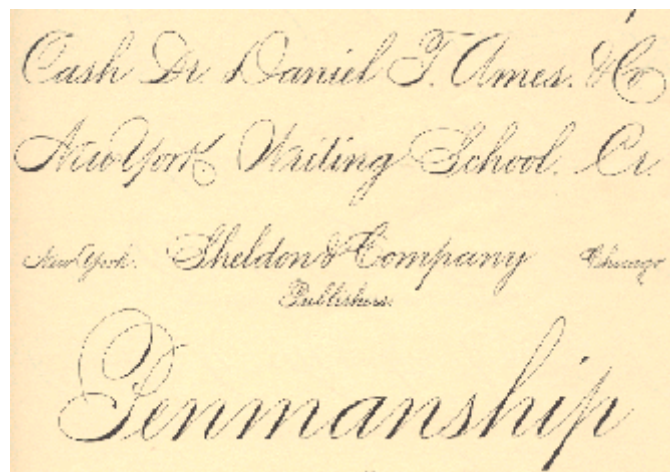 Cash Dr. Daniel T. Ames. & Co
New York Writing School. Cr.
New York. Sheldon & Company Chicago
Publishers.
Penmanship